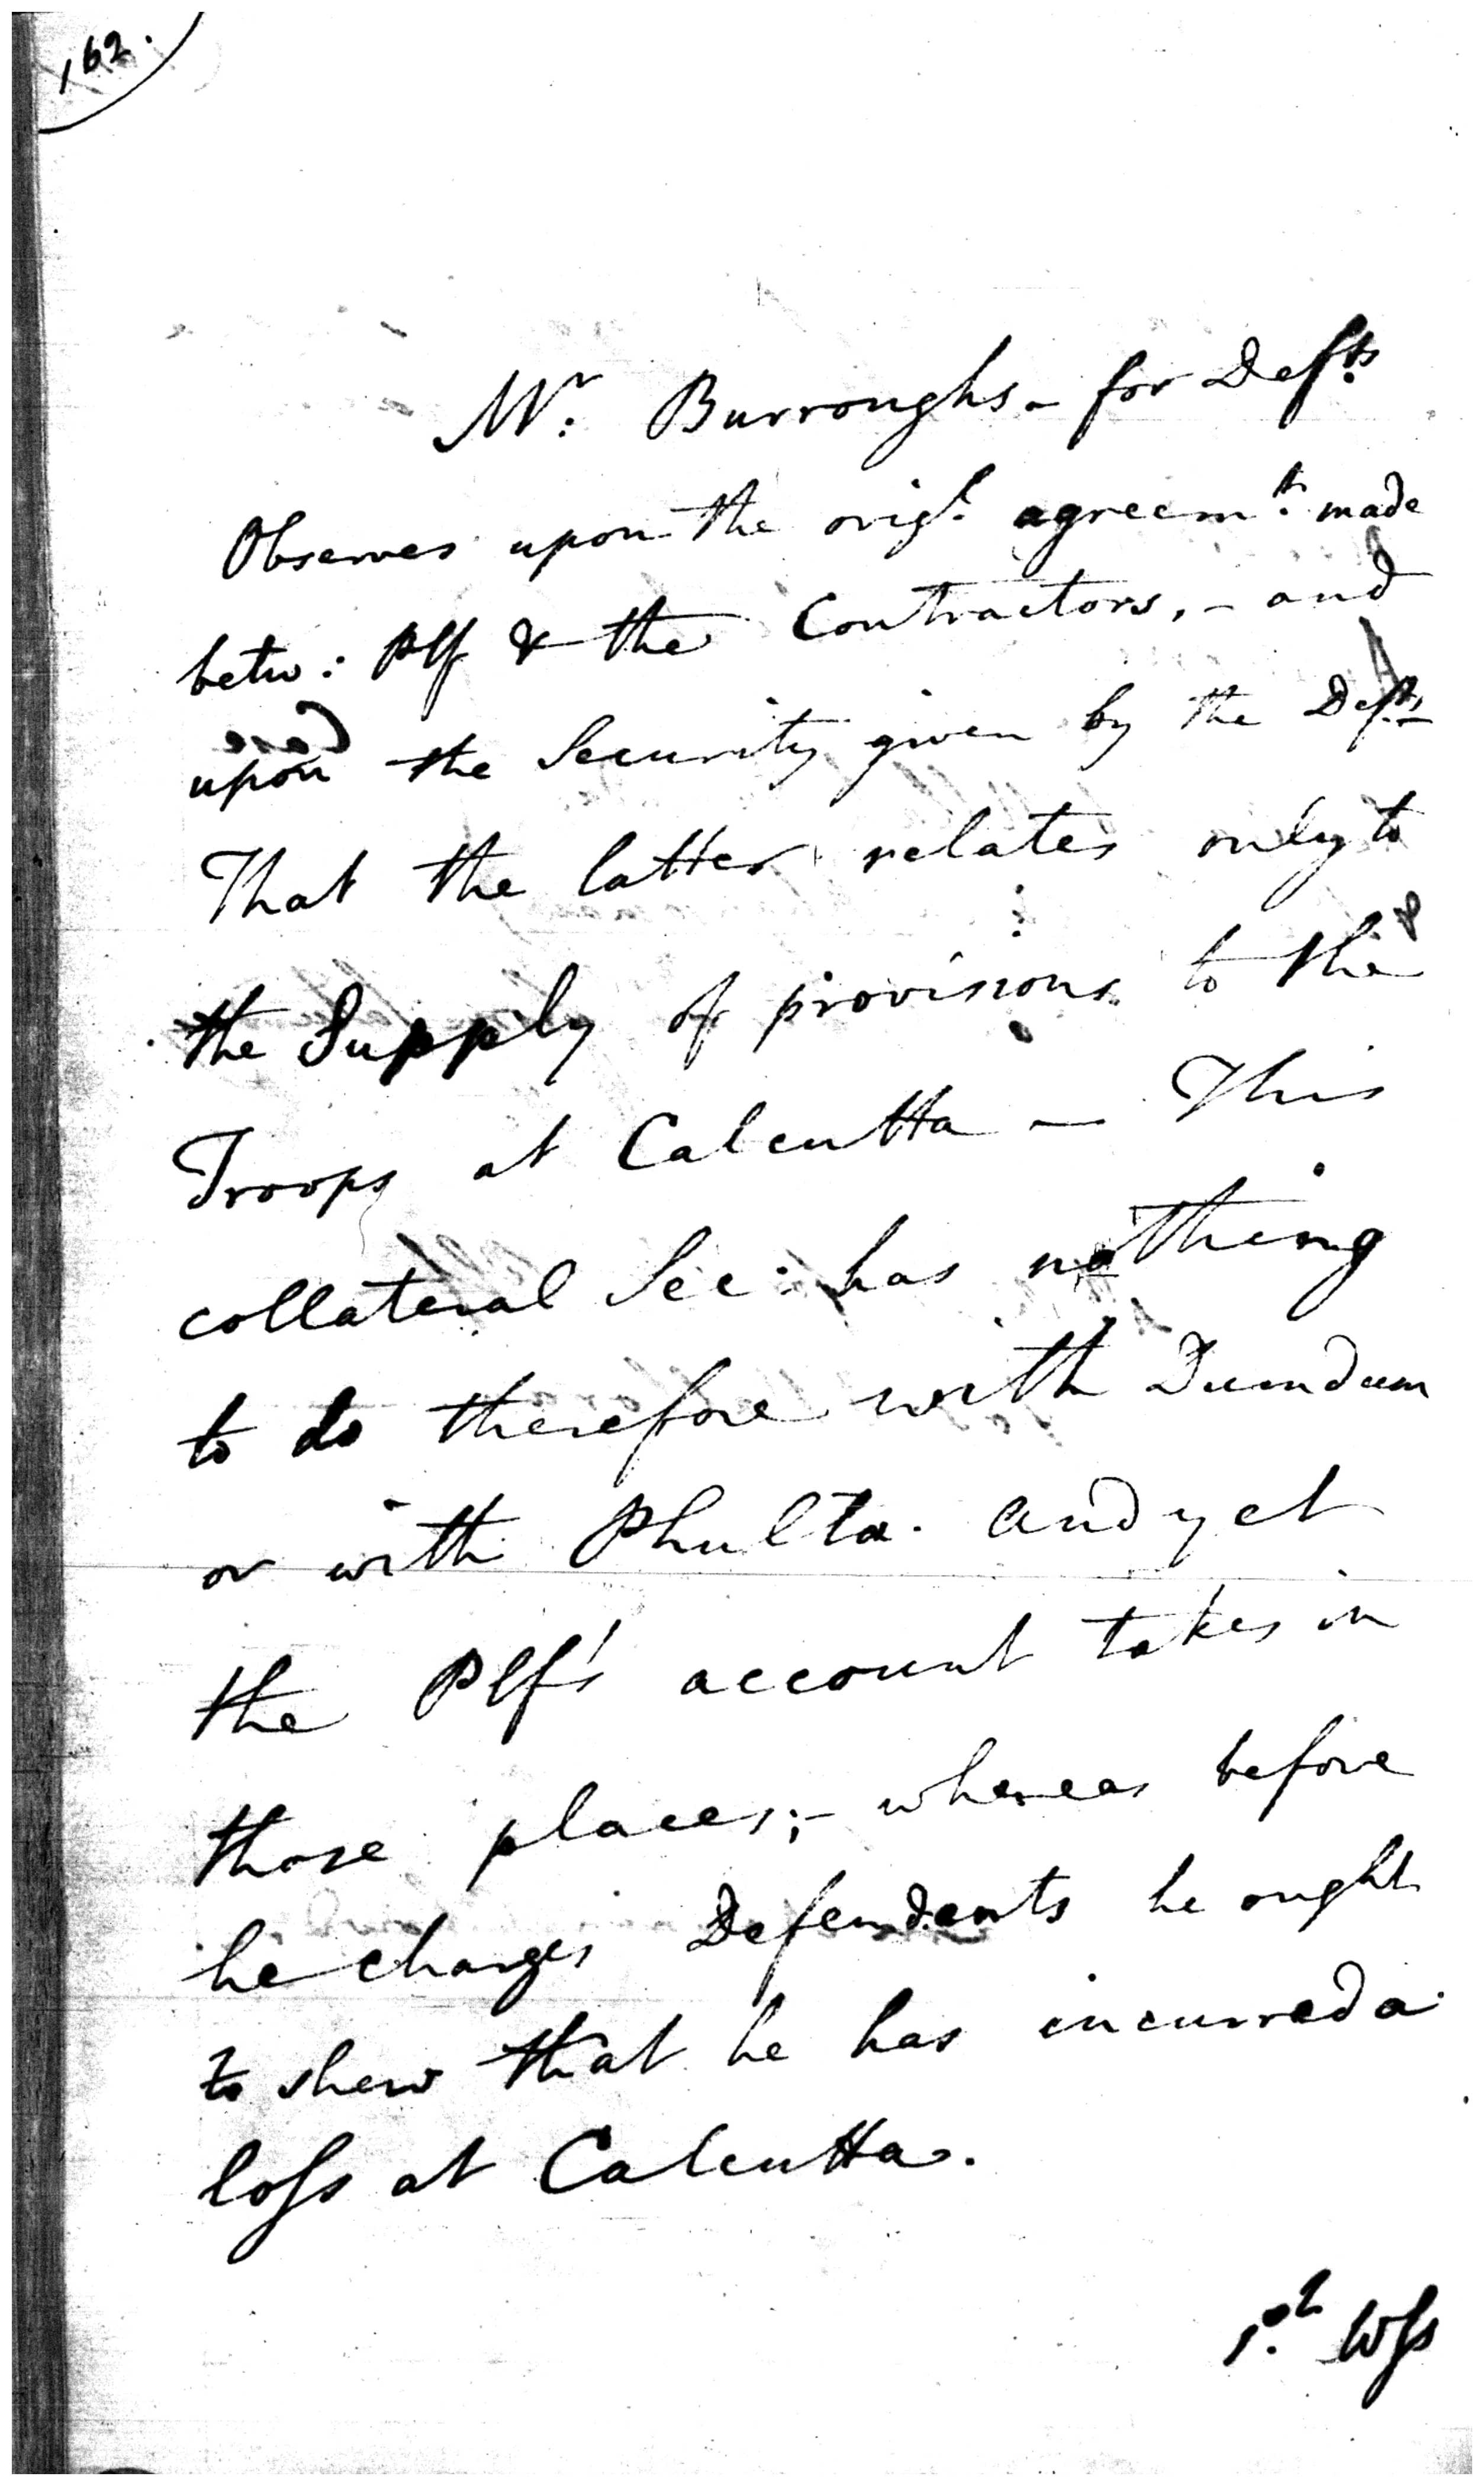 162.
Mr: Burroughs - for Defts
Observes upon the origl. agreemt. made
betw: Plf & the Contractors, - and
upon the Security given by the Defts
That the latter relates only to
the Supply of provisions to the
Troops at Calcutta — This
collateral Sec: has nothing
to do therefore with Dumdum
or with Phulta. and yet
the Plf's account takes in
those places; - whereas before
he charges Defendants he ought
to shew that he has incurred a
loss at Calcutta.
1st. Wss